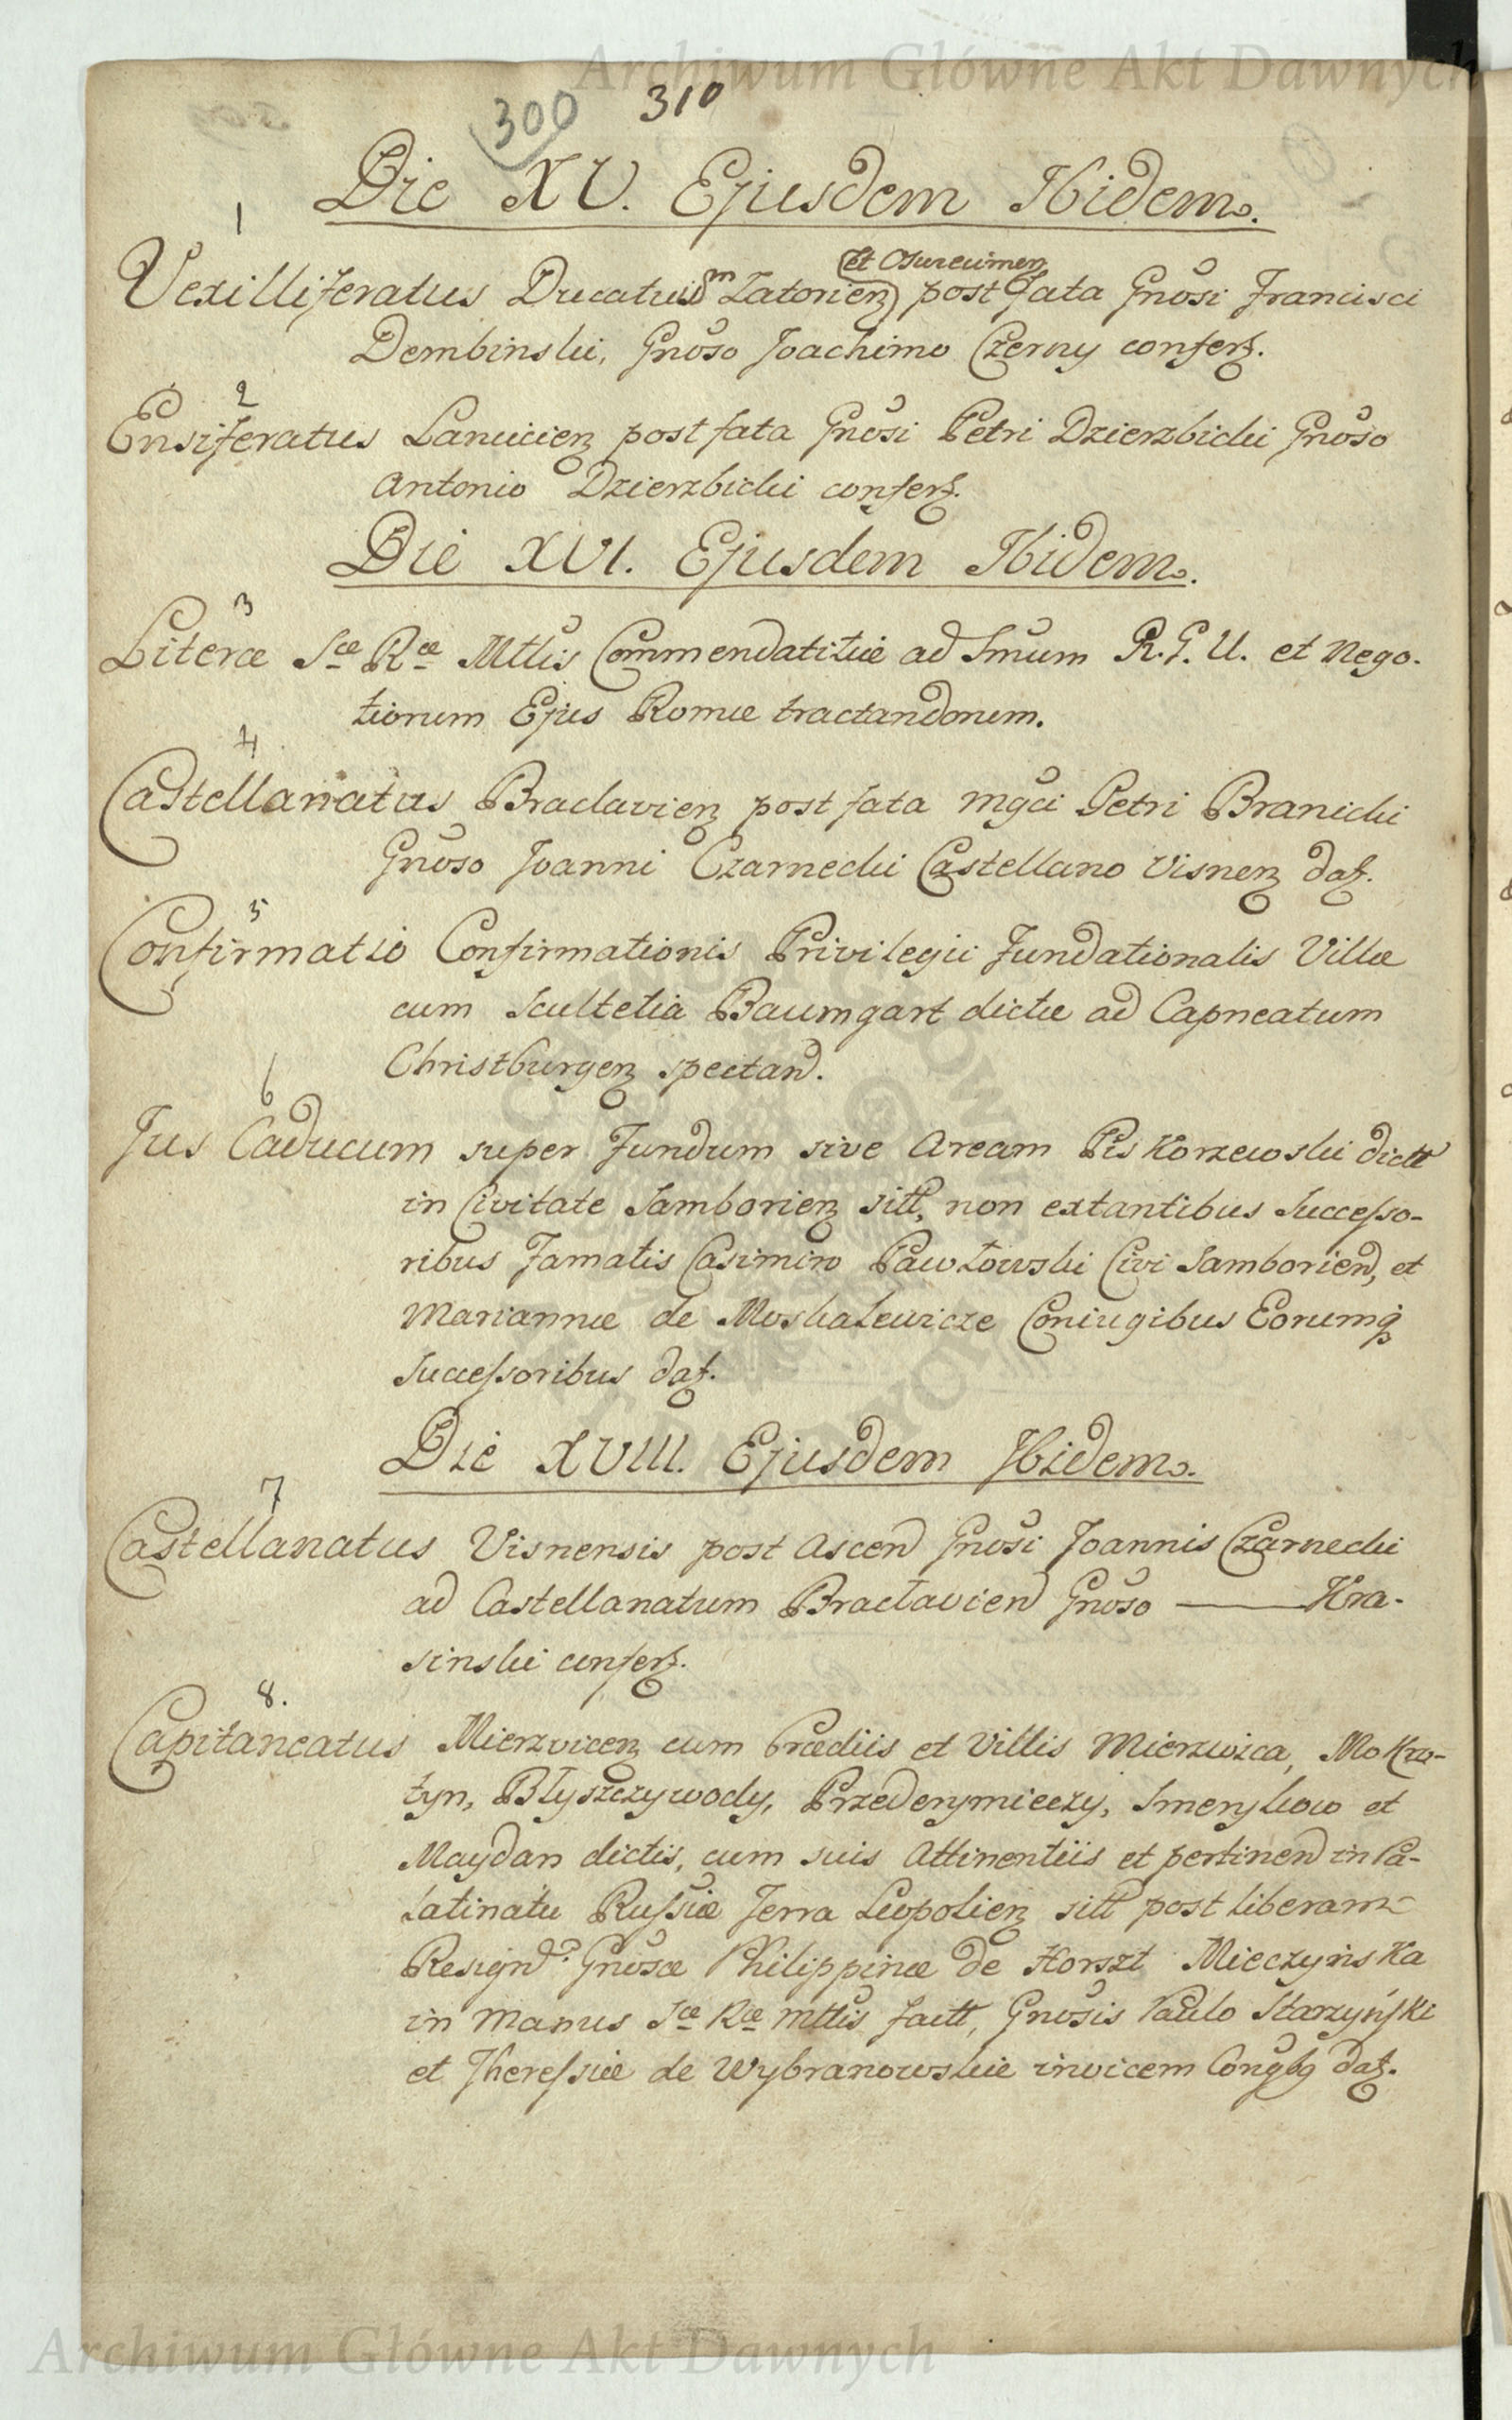 Archiwum Główne Akt Dawnych
300 310
Die XV. Ejusdem Ibidem.
1
et Osvecimen
Vexilliferatus Ducatuum Zatorien post fata Gnosi Francisci
Dembinski, Gnoso Joachimo Czerny confert.
2
Ensiferatus Lancicien post fata Gnosi Petri Dzierzbicki Gnoso
Antonio Dzierzbicki confert.
Die XVI. Ejusdem Ibidem.
3
Literæ Sæ Ræ Mttis Commendatitiæ ad Smum R. G. U. et Nego-
tiorum Ejus Romæ tractandorum.
4
Castellanatus Braclavien post fata Mgci Petri Branicki
Gnoso Joanni Czarnecki Castellano Visnen dat.
5
Confirmatio Confirmationis Privilegii Fundationalis Villæ
cum Scultetia Baumgart dictæ ad Capneatum
Christburgen spectand.
6
Jus Caducum super Fundum sive Aream Piskorzewski dictt
in Civitate Samborien sitt, non extantibus Successo-
ribus Famatis Casimiro Pawłowski Civi Samborien, et
Mariannæ de Moskalewicze Coniugibus Eorumq
Successoribus dat.
Die XVIII. Ejusdem Ibidem.
7
Castellanatus Visnensis post Ascen Gnosi Joannis Czarnecki
ad Castellanatum Braclavien Gnoso ——— Kra-
sinski confert.
8.
Capitaneatus Mierzvicen cum Prædiis et Villis Mierzwica, Mokro-
tyn, Błyszczywody, Przederymiechy, Smerykow et
Maydan dictis, cum suis Attinentiis et pertinen in Pa-
latinatu Russiæ Terra Leopolien sitt post liberam
Resignd Gnosæ Philippinæ de Horszt Mieczyńska
in Manus Sæ Ræ Mttis factt, Gnosis Paulo Starzyński
et Theressiæ de Wybranowskie invicem Congbg dat.
Archiwum Główne Akt Dawnych